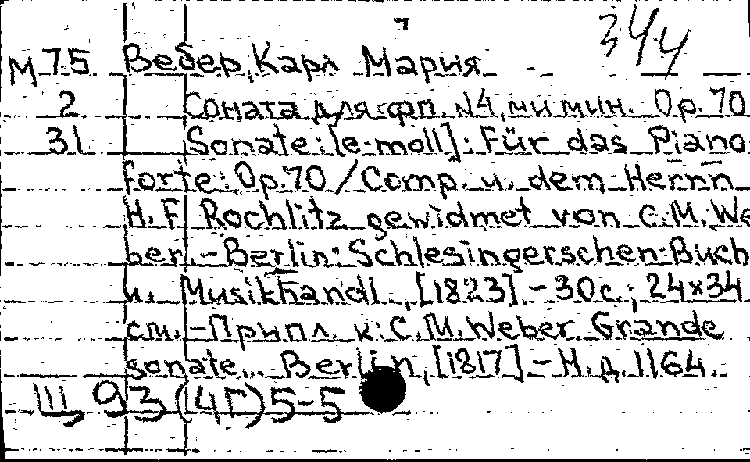 344
М 75 Вебер, Карл Мария
2 Соната для фп. N4, ми мин. Op. 70
31 Sonate: [e-moll]: Für das Piano-
forte: Op. 70 / Comp. u. dem Herrn
H. F. Rochlitz gewidmet von C. M. We
ber. - Berlin: Schlesingerschen Buch
u. Musikhandl., [1823]. - 30 с.; 24x34
см. - Припл. к: C. M. Weber. Grande
sonate... Berlin, [1817]. - Н. д. 1164.
Щ 93(4Г)5-5